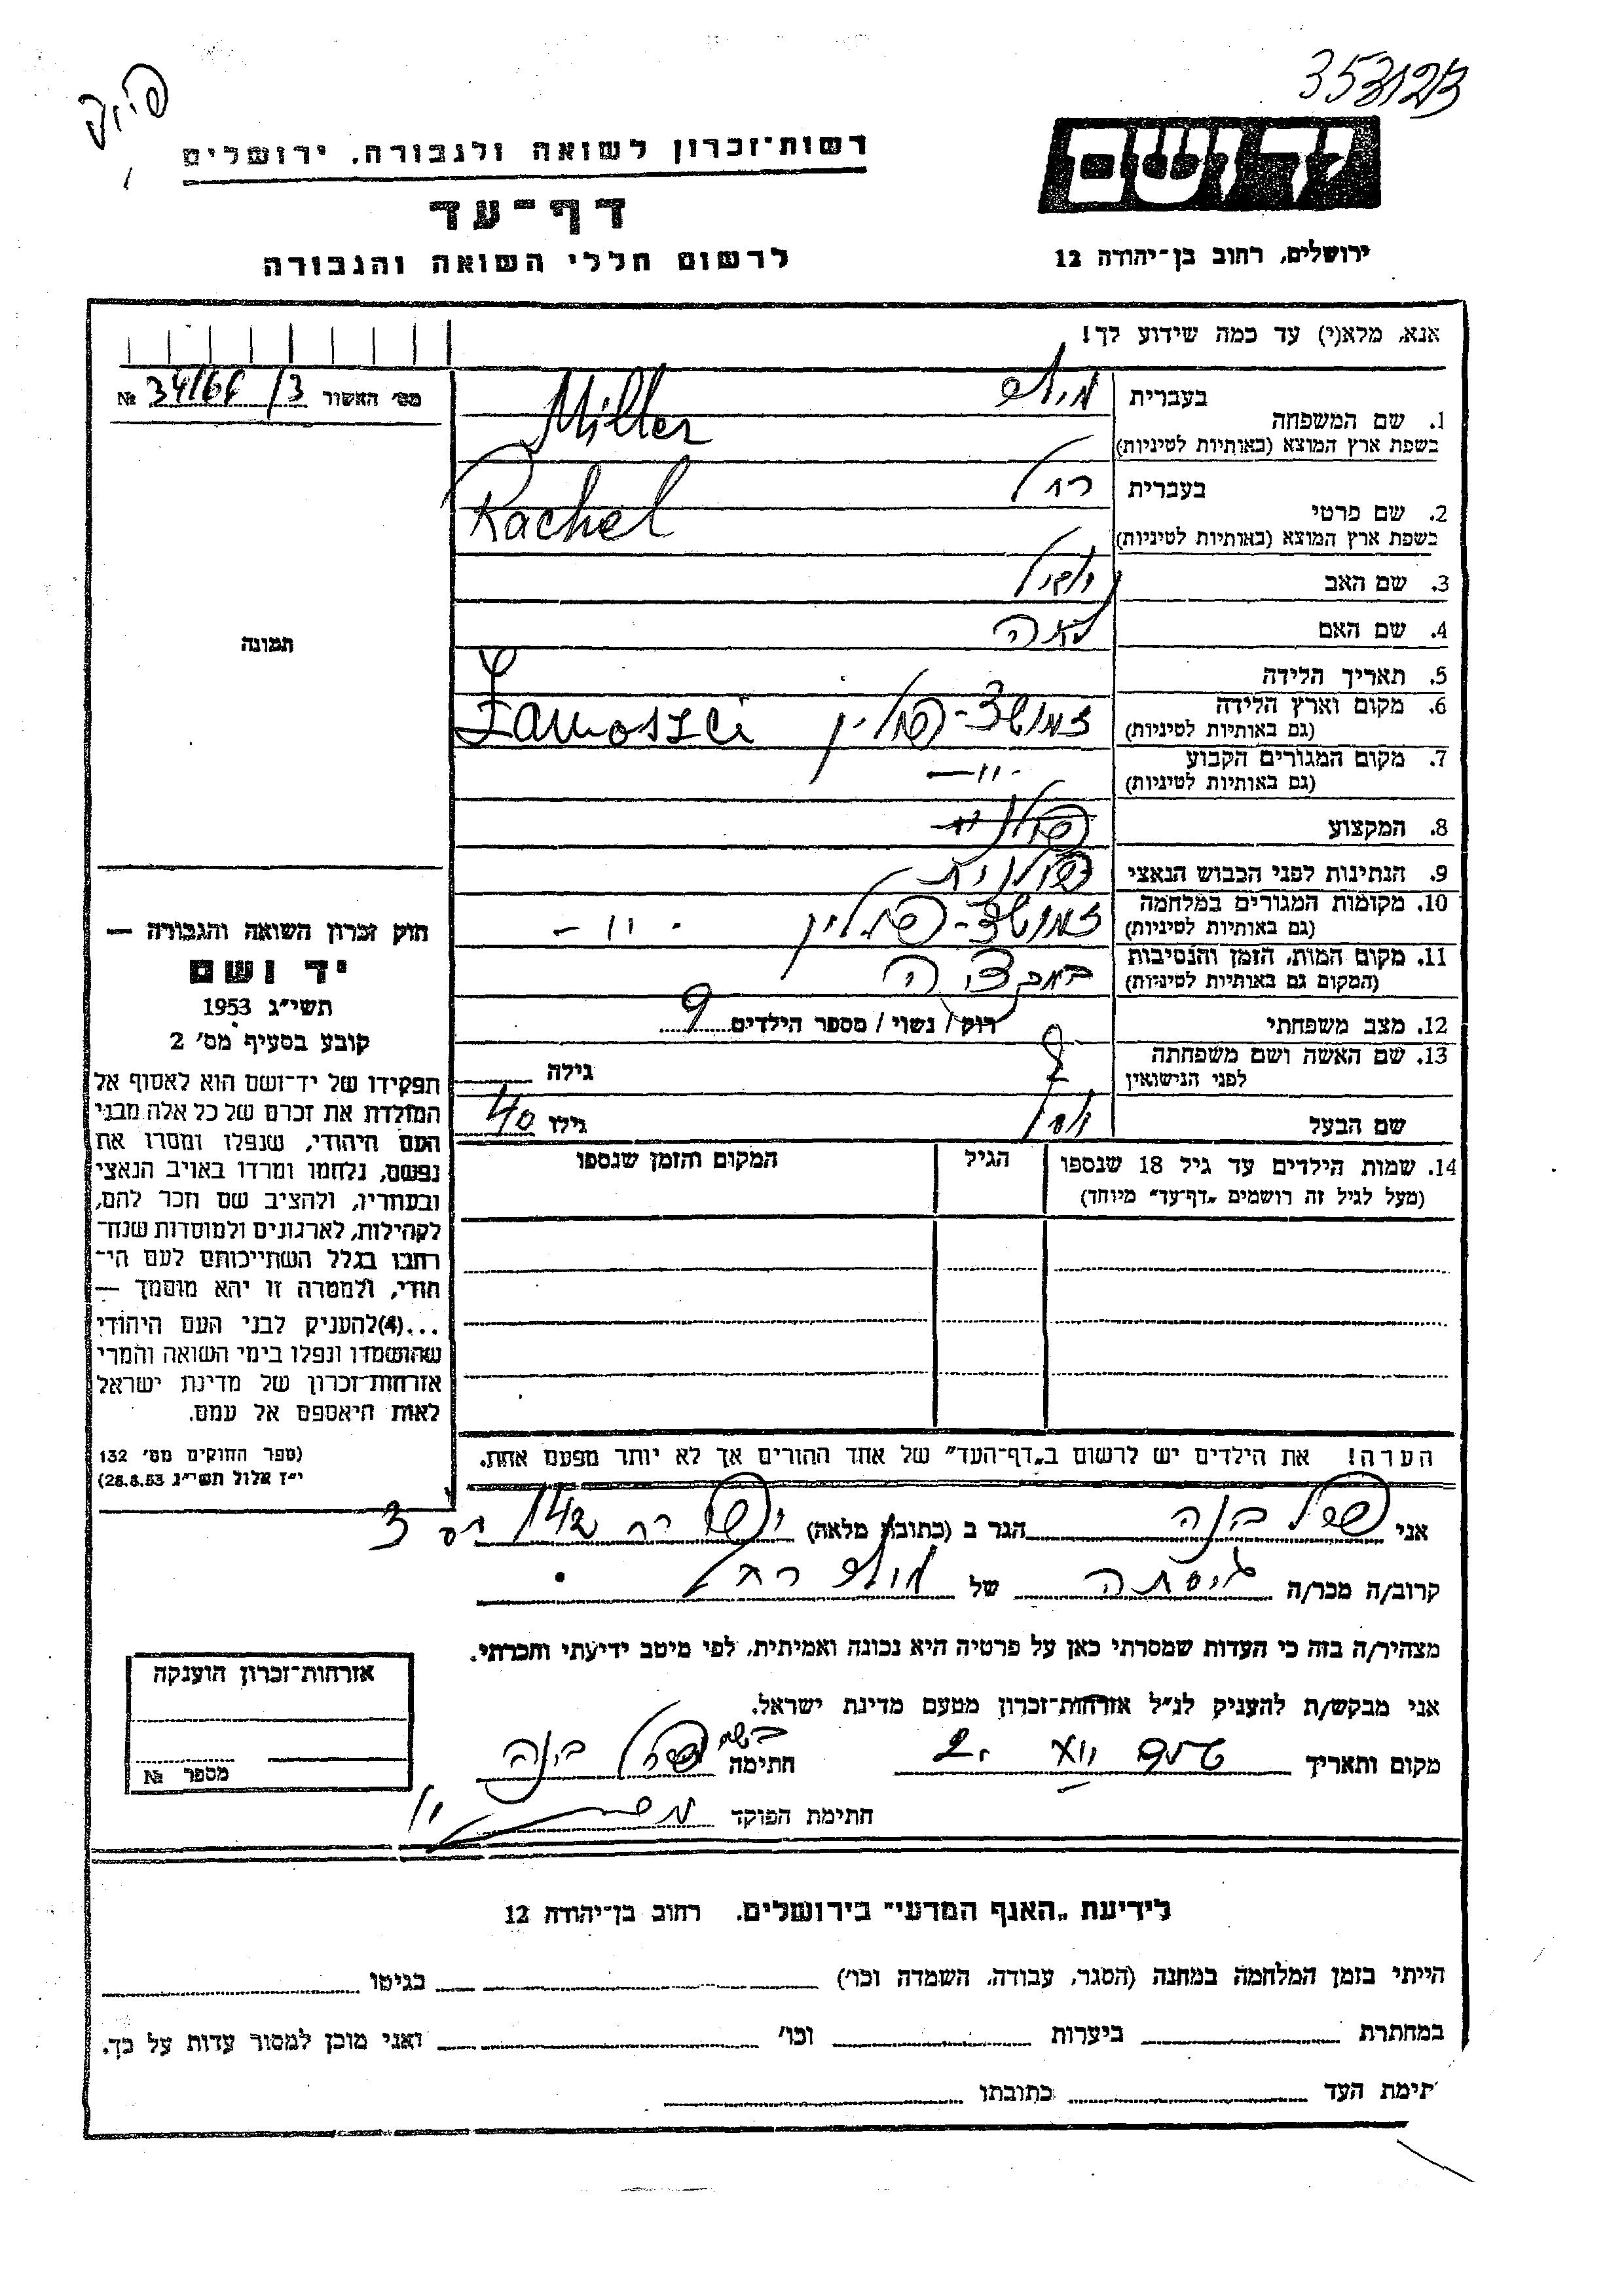 353123
יד ושם
רשות־זכרון לשואה ולגבורה, ירושלים
דף־עד
לרשום חללי השואה והגבורה
ירושלים, רחוב בן־יהודה 12
אנא, מלא(י) עד כמה שידוע לך!
מס׳ האשור № 34164/3
1. שם המשפחה
בעברית מילר
בשפת ארץ המוצא (באותיות לטיניות) Miller
2. שם פרטי
בעברית רחל
בשפת ארץ המוצא (באותיות לטיניות) Rachel
3. שם האב
4. שם האם לאה
5. תאריך הלידה
6. מקום וארץ הלידה זמושצ - פולין Zamoszci
(גם באותיות לטיניות)
7. מקום המגורים הקבוע -"-
(גם באותיות לטיניות)
8. המקצוע
9. הנתינות לפני הכבוש הנאצי פולנית
10. מקומות המגורים במלחמה זמושצ - פולין -"-
(גם באותיות לטיניות)
11. מקום המות, הזמן והנסיבות באקציה
(המקום גם באותיות לטיניות)
12. מצב משפחתי רווק / נשוי / מספר הילדים
13. שם האשה ושם משפחתה גילה
לפני הנישואין
שם הבעל גילו 40
14. שמות הילדים עד גיל 18 שנספו הגיל המקום והזמן שנספו
(מעל לגיל זה רושמים „דף־עד״ מיוחד)
הערה! את הילדים יש לרשום ב„דף־העד״ של אחד ההורים אך לא יותר מפעם אחת.
תמונה
חוק זכרון השואה והגבורה —
יד ושם
תשי״ג 1953
קובע בסעיף מס׳ 2
תפקידו של יד־ושם הוא לאסוף אל
המולדת את זכרם של כל אלה מבני
העם היהודי, שנפלו ומסרו את
נפשם, נלחמו ומרדו באויב הנאצי
ובעוזריו, ולהציב שם וזכר להם,
לקהילות, לארגונים ולמוסדות שנח־
רבו בגלל השתייכותם לעם הי־
הודי, ולמטרה זו יהא מוסמך —
...(4)להעניק לבני העם היהודי
שהושמדו ונפלו בימי השואה והמרי
אזרחות־זכרון של מדינת ישראל
לאות היאספם אל עמם.
(ספר החוקים מס׳ 132
י״ז אלול תשי״ג 28.8.53)
אני בינה הגר ב (כתובת מלאה)
קרוב/ה מכר/ה גיסתה של מילר רחל
מצהיר/ה בזה כי העדות שמסרתי כאן על פרטיה היא נכונה ואמיתית, לפי מיטב ידיעתי והכרתי.
אני מבקש/ת להעניק לנ״ל אזרחות־זכרון מטעם מדינת ישראל.
מקום ותאריך חתימה בינה
חתימת הפוקד
אזרחות־זכרון הוענקה
מספר №
לידיעת „האגף המדעי״ בירושלים. רחוב בן־יהודה 12
הייתי בזמן המלחמה במחנה (הסגר, עבודה, השמדה וכו׳) בגיטו
במחתרת ביערות וכו׳ ואני מוכן למסור עדות על כך.
תימת העד כתובתו